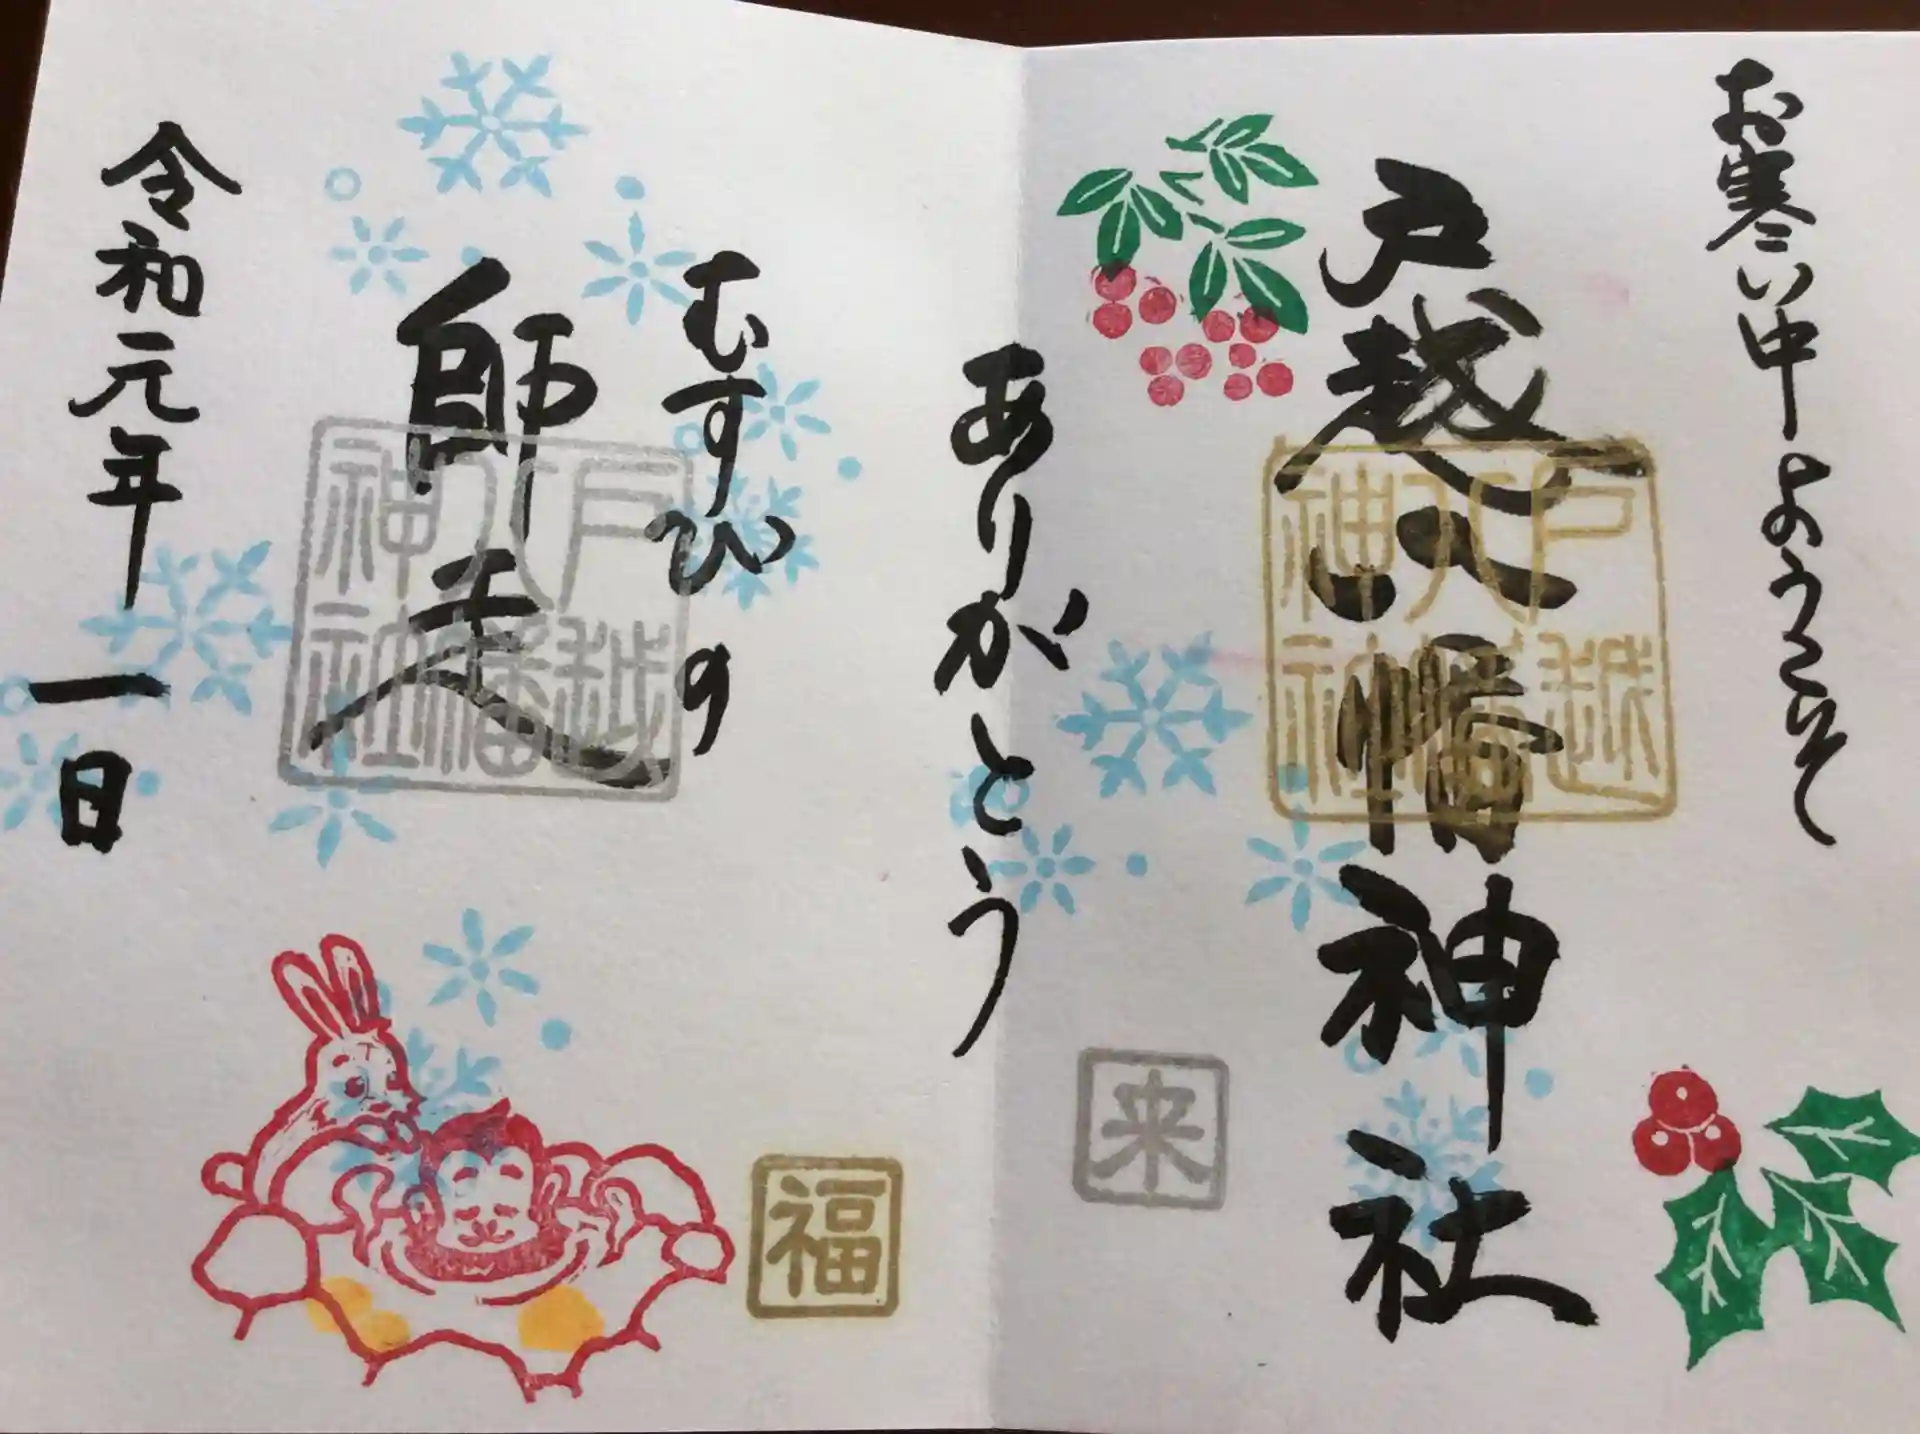 お寒い中ようこそ
戸越八幡神社
戸越
八幡
神社
来
ありがとう
むすびの
師走
戸越
八幡
神社
福
令和元年
一日